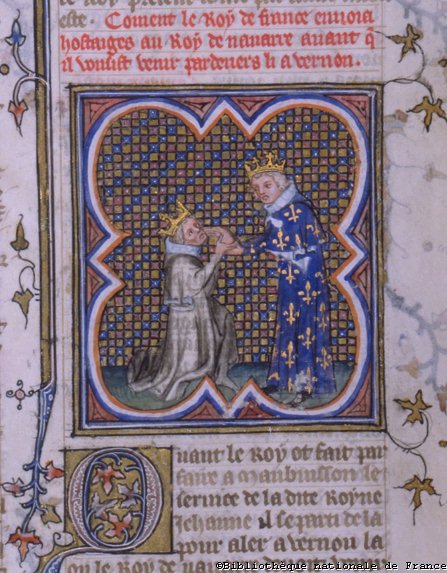 este. Coment le Roy de france envoia
hostaiges au Roy de navarre avant q̄
il voulsist venir pardevers li a vernon.
Quant le Roy ot fait par
faire a Maubuisson le
service de la dite Royne
Jehanne il se parti de la
pour aler a vernon la
ou le Roy de
©Bibliothèque nationale de Franc